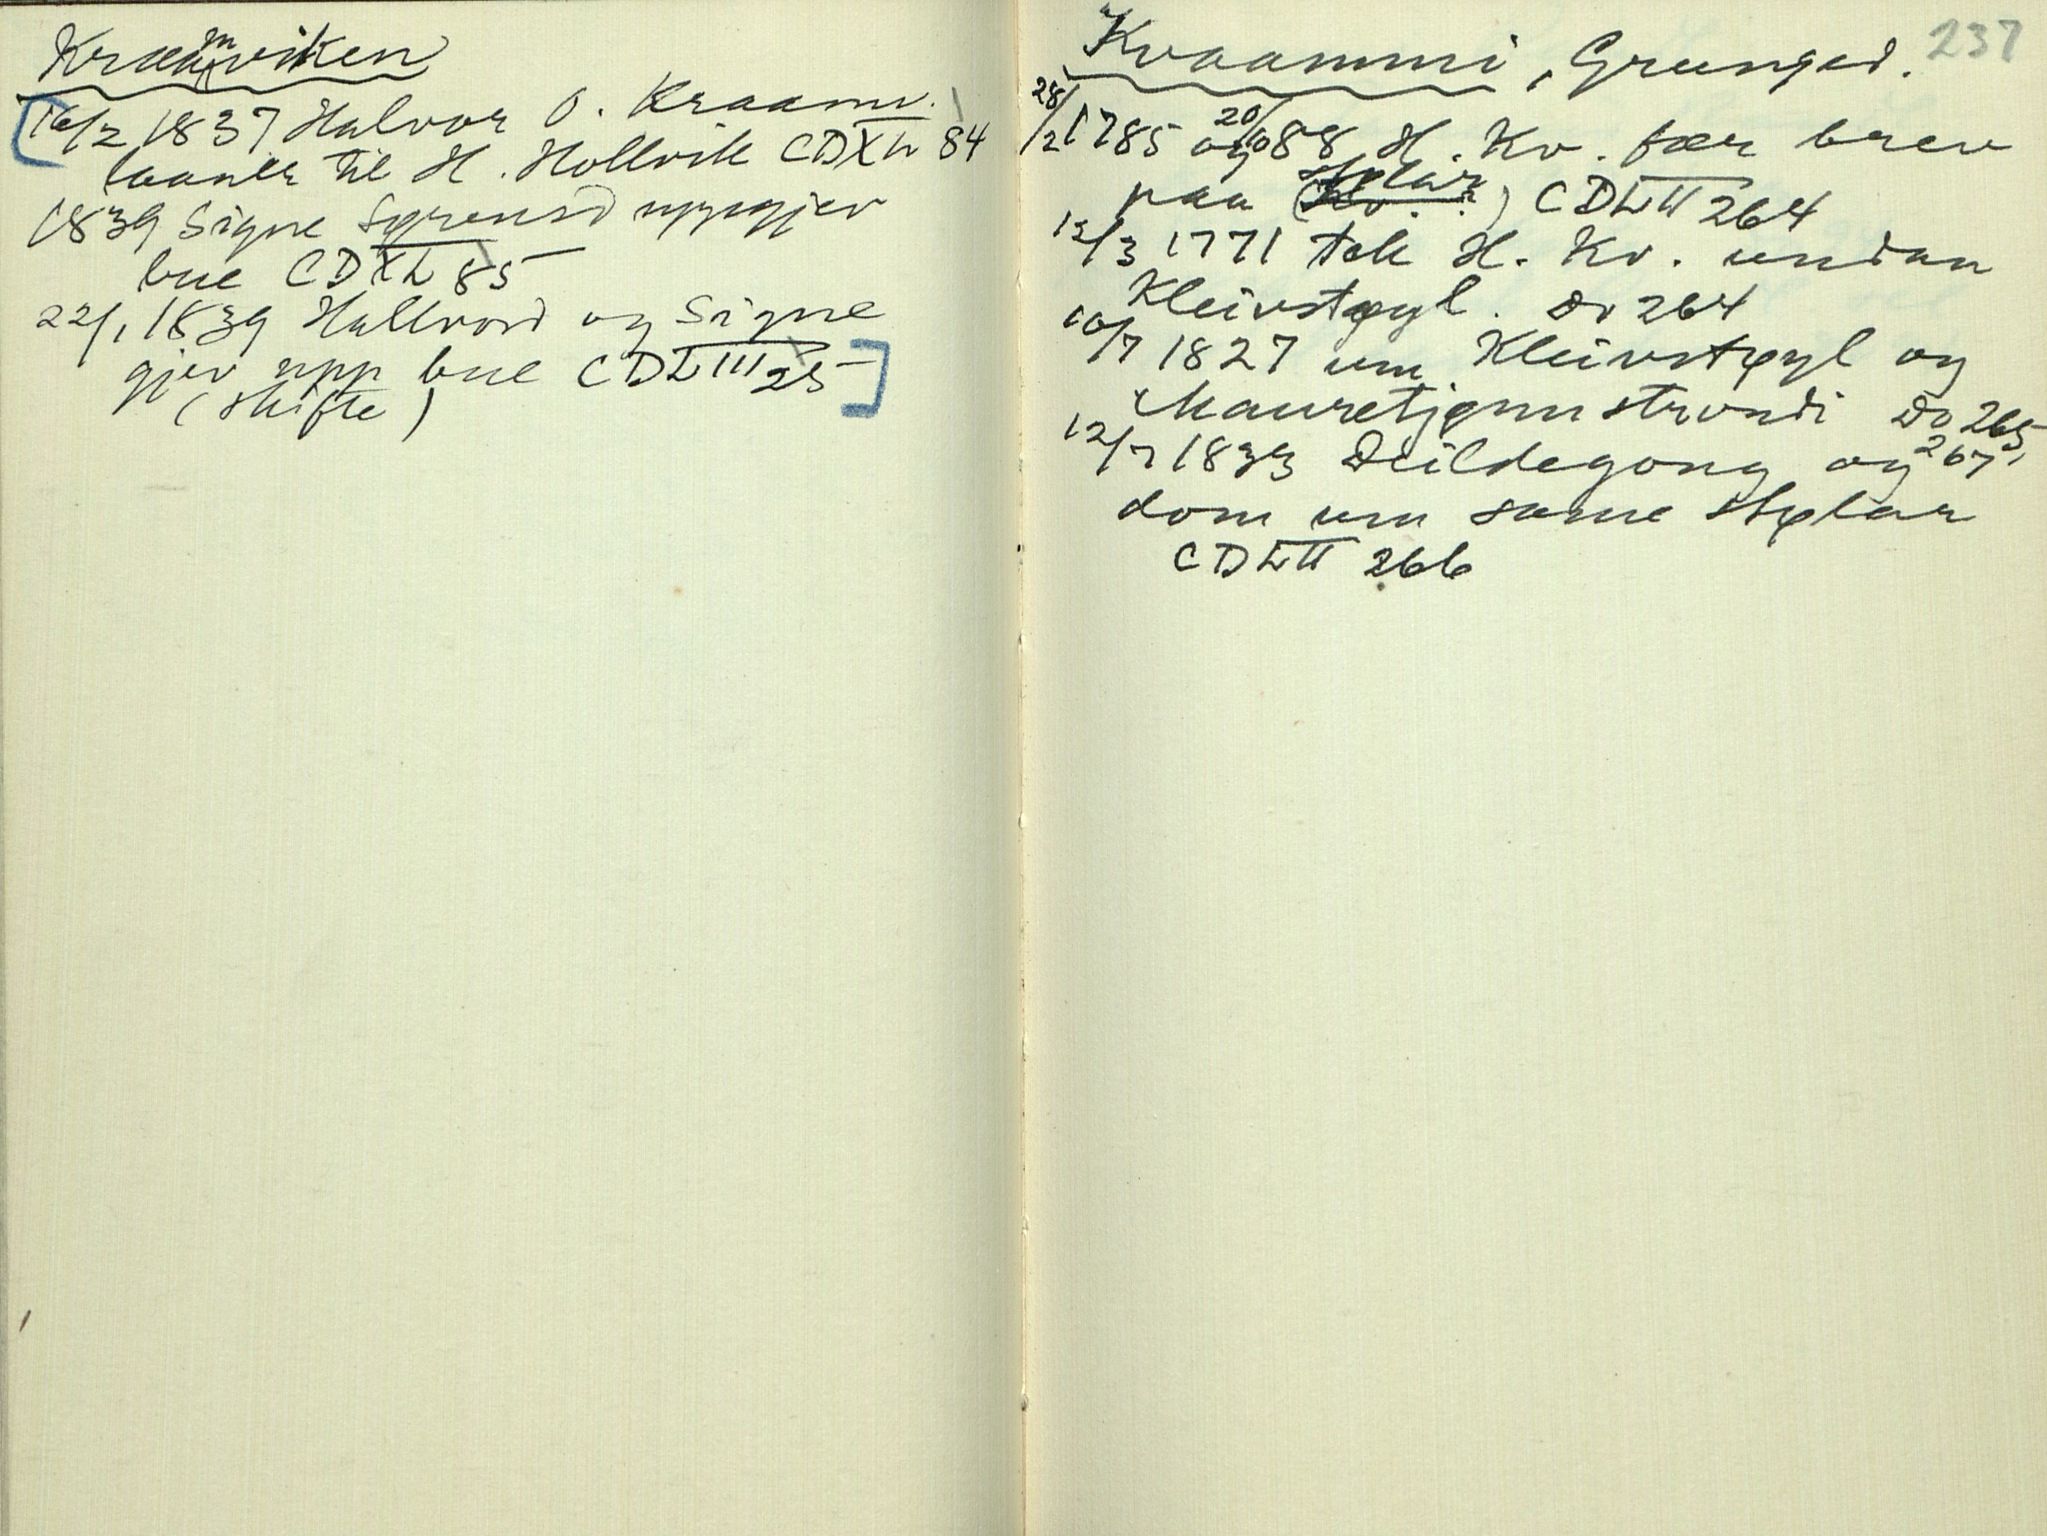 Kraamviken
16/2 1837 Halvor O. Kraamv.
laaner til H. Hollvik CDXL 84
1839 Signe Sørensd uppgjev
bue CDXL 85
22/1 1839 Hallvord og Signe
gjev upp bue CDLIII 25
(skifte)
237
Kvaammi, Grungad.
28/2 1785 og 20/10 88 H. Kv. fær brev
paa (Stølar) CDLII 264
12/3 1771 tek H. Kv. undan
Kleivstøyl. Do 264
10/7 1827 um Kleivstøyl og
Mauretjønnstrondi Do 265,
12/7 1833 Deildegong og 267
dom um same stølar
CDLII 266